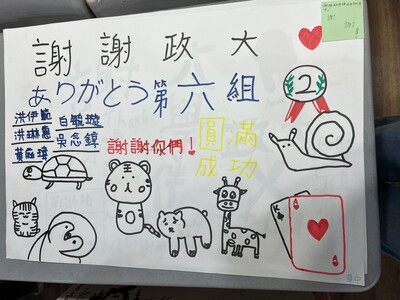 謝謝政大
ありがとう第六組
洪伊範 白毓璇
洪琳惠 吳念錞
黃庭瑋
謝謝你們!
圓滿
成功
2
K
A